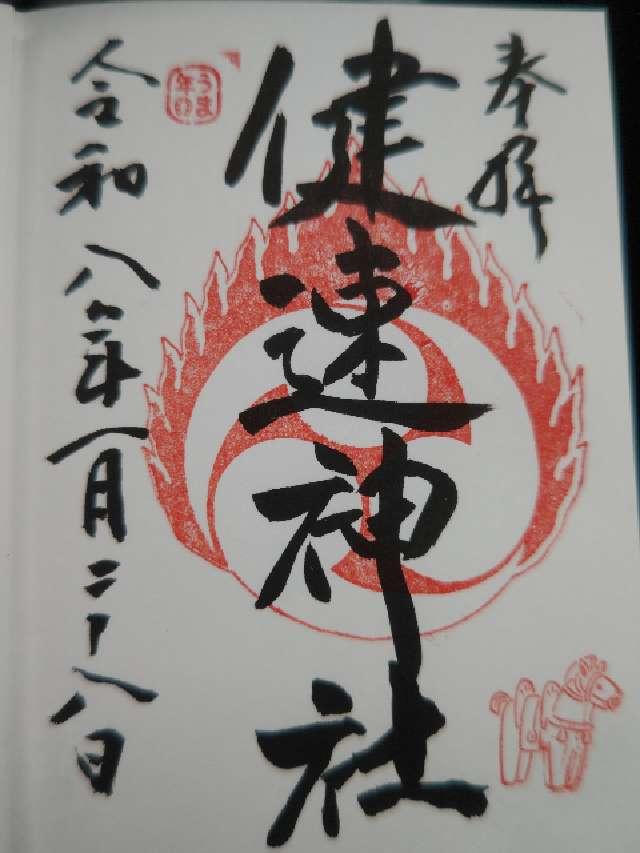 奉拝
健速神社
令和八年一月二十八日
うま
年の